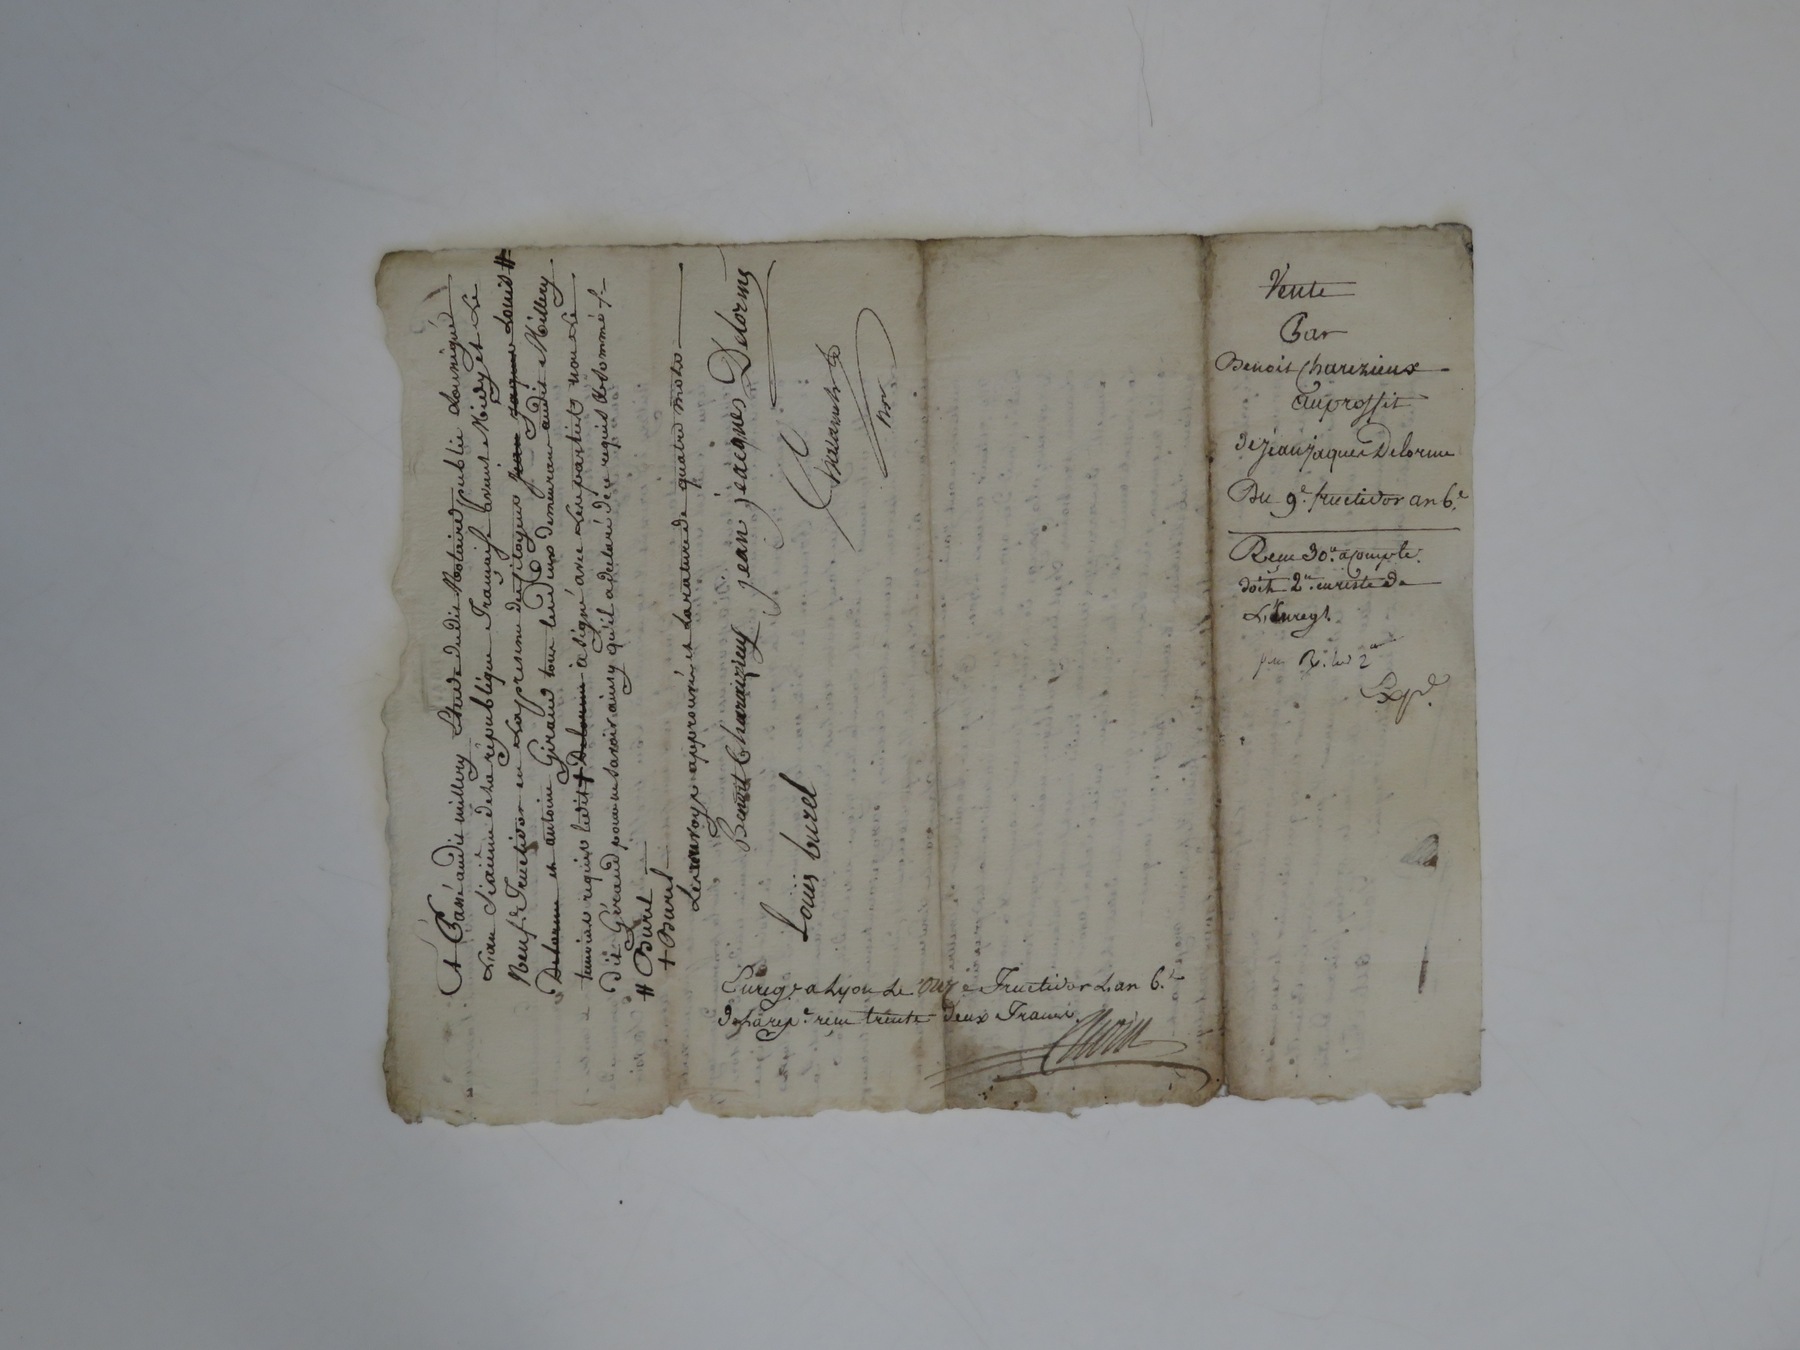 Et Passé audit millery Etude dudit Notaire public soussigné
L'an sixième de la république française avant Midy et Le
Neuf fructidor en La présence des Citoyens jean jaques Louis #
Delorme et antoine Giraud tous les deux demeurant audit Millery
temoins requis ledit + Delorme a signé avec Les parties non Le
dit Géraud pour ne savoir ainsy qu'il a déclaré de ce requis & sommé /-
# Burel
+ Burel
Le renvoy approuvé et La rature de quatre mots
Benoit Charaizieux jean jeacques Delorme
Louis burel
nore
Enregé a Lyon Le onze Fructidor L'an 6e
de la repe reçu trente deux Francs
Vente
Par
Benoit Charezieux
au proffit
de jean jaques Delorme
Du 9e fructidor an 6e
Reçu 30 a Compte
doit 2 en reste de
L'Enregt
Expé